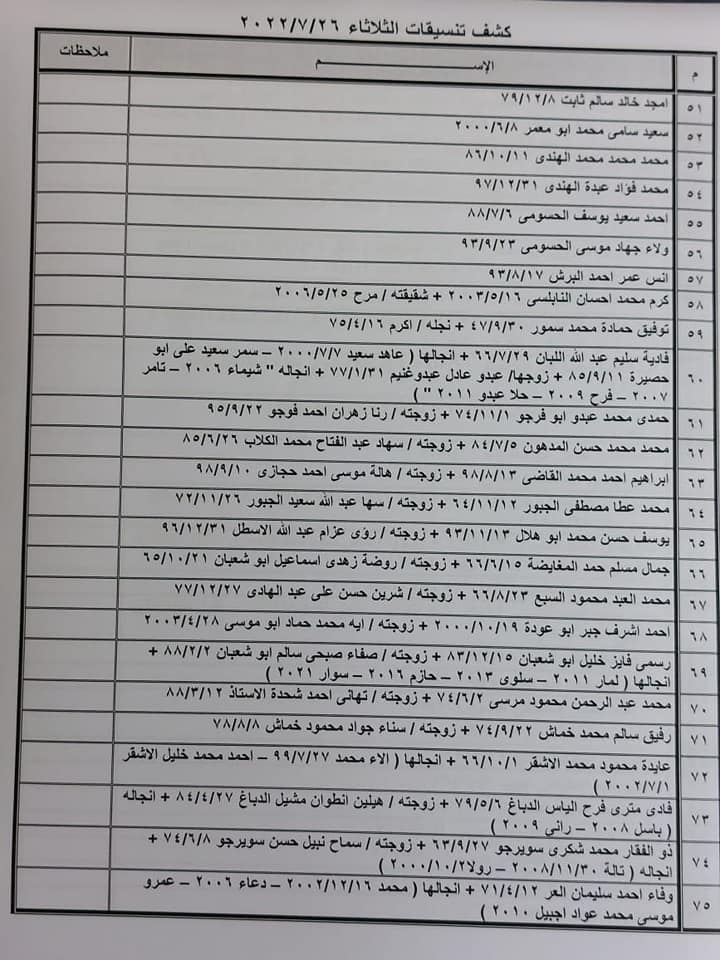 كشف تنسيقات الثلاثاء ٢٠٢٢/٧/٢٦
م الإســـــــم ملاحظات
٥١ امجد خالد سالم ثابت ٧٩/١٢/٨
٥٢ سعيد سامى محمد ابو معمر ٢٠٠٠/٦/٨
٥٣ محمد محمد محمد الهندى ٨٦/١٠/١١
٥٤ محمد فؤاد عبدة الهندى ٩٧/١٢/٣١
٥٥ احمد سعيد يوسف الحسومى ٨٨/٧/٦
٥٦ ولاء جهاد موسى الحسومى ٩٣/٩/٢٣
٥٧ انس عمر احمد البرش ٩٣/٨/١٧
٥٨ كرم محمد احسان النابلسى ٢٠٠٣/٥/١٦ + شقيقته / مرح ٢٠٠٦/٥/٢٥
٥٩ توفيق حمادة محمد سمور ٤٧/٩/٣٠ + نجله / اكرم ٧٥/٤/١٦
٦٠ فادية سليم عبد الله اللبان ٦٦/٧/٢٩ + انجالها ( عاهد سعيد ٢٠٠٠/٧/٧ – سمر سعيد على ابو
حصيرة ٨٥/٩/١١ + زوجها/ عبدو عادل عبدوغنيم ٧٧/١/٣١ + انجاله " شيماء ٢٠٠٦ – تامر
٢٠٠٧ – فرح ٢٠٠٩ – حلا عبدو ٢٠١١ " )
٦١ حمدى محمد عبدو ابو فرجو ٧٤/١١/١ + زوجته / رنا زهران احمد فوجو ٩٥/٩/٢٢
٦٢ محمد محمد حسن المدهون ٨٤/٧/٥ + زوجته / سهاد عبد الفتاح محمد الكلاب ٨٥/٦/٢٦
٦٣ ابراهيم احمد محمد القاضى ٩٨/٨/١٣ + زوجته / هالة موسى احمد حجازى ٩٨/٩/١٠
٦٤ محمد عطا مصطفى الجبور ٦٤/١١/١٢ + زوجته / سها عبد الله سعيد الجبور ٧٢/١١/٢٦
٦٥ يوسف حسن محمد ابو هلال ٩٣/١١/١٣ + زوجته / رؤى عزام عبد الله الاسطل ٩٦/١٢/٣١
٦٦ جمال مسلم حمد المغايضة ٦٦/٦/١٥ + زوجته / روضة زهدى اسماعيل ابو شعبان ٦٥/١٠/٢١
٦٧ محمد العبد محمود السبع ٦٦/٨/٢٣ + زوجته / شرين حسن على عبد الهادى ٧٧/١٢/٢٧
٦٨ احمد اشرف جبر ابو عودة ٢٠٠٠/١٠/١٩ + زوجته / ايه محمد حماد ابو موسى ٢٠٠٣/٤/٢٨
٦٩ رسمى فايز خليل ابو شعبان ٨٣/١٢/١٥ + زوجته / صفاء صبحى سالم ابو شعبان ٨٨/٢/٢ +
انجالها ( لمار ٢٠١١ – سلوى ٢٠١٣ – حازم ٢٠١٦ – سوار ٢٠٢١ )
٧٠ محمد عبد الرحمن محمود مرسى ٧٤/٦/٢ + زوجته / تهانى احمد شحدة الاستاذ ٨٨/٣/١٢
٧١ رفيق سالم محمد خماش ٧٤/٩/٢٢ + زوجته / سناء جواد محمود خماش ٧٨/٨/٨
٧٢ عايدة محمود محمد الاشقر ٦٦/١٠/١ + انجالها ( الاء محمد ٩٩/٧/٢٧ – احمد محمد خليل الاشقر
٢٠٠٢/٧/١ )
٧٣ فادى مترى فرح الياس الدباغ ٧٩/٥/٦ + زوجته / هيلين انطوان مشيل الدباغ ٨٤/٤/٢٧ + انجاله
( باسل ٢٠٠٨ – راني ٢٠٠٩ )
٧٤ ذو الفقار محمد شكرى سويرجو ٦٣/٩/٢٧ + زوجته / سماح نبيل حسن سويرجو ٧٤/٦/٨ +
انجاله ( تالة ٢٠٠٨/١١/٣٠ – رولا٢٠٠٠/١٠/٢ )
٧٥ وفاء احمد سليمان العر ٧١/٤/١٢ + انجالها ( محمد ٢٠٠٢/١٢/١٦ – دعاء ٢٠٠٦ – عمرو
موسى محمد عواد اجبيل ٢٠١٠ )